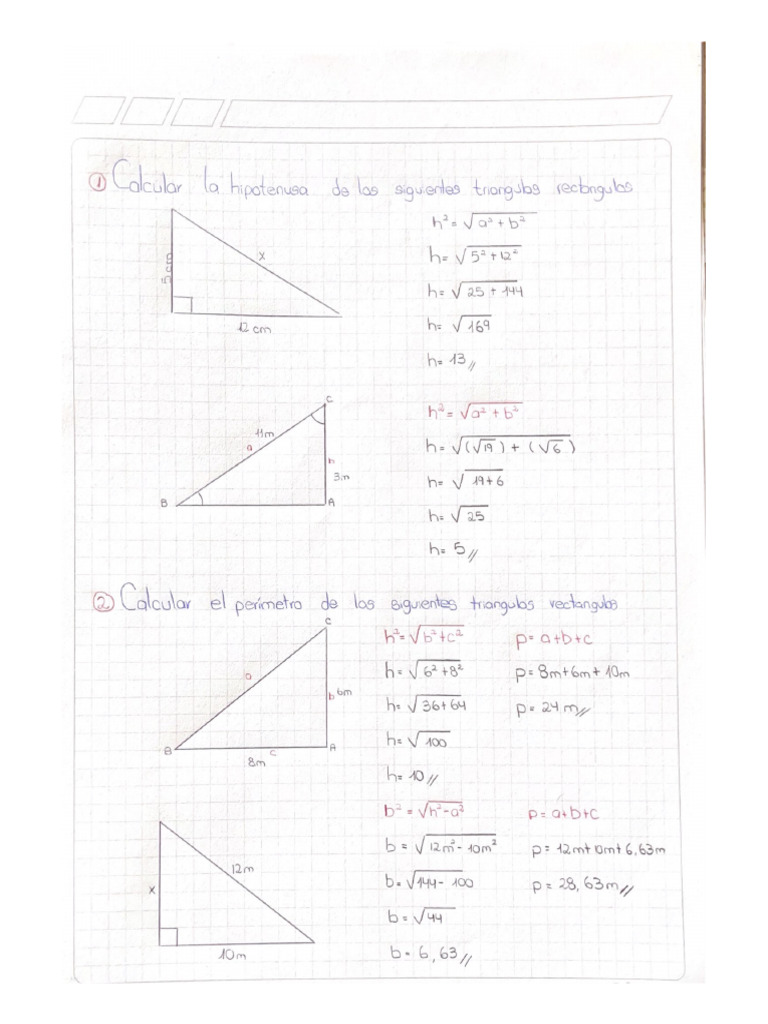 ① Calcular la hipotenusa de los siguientes triangulos rectangulos
5cm
x
12 cm
h² = √a² + b²
h = √5² + 12²
h = √25 + 144
h = √169
h = 13 //
C
11m
a
h
3m
B
A
h² = √a² + b²
h = √(√19) + (√6)
h = √19+6
h = √25
h = 5 //
② Calcular el perímetro de los siguientes triangulos rectangulos
C
a
b 6m
B
c
A
8m
h² = √b² + c²
h = √6² + 8²
h = √36 + 64
h = √100
h = 10 //
p = a+b+c
p = 8m+6m+10m
p = 24 m //
x
12m
10m
b² = √h² - a²
b = √12m² - 10m²
b = √144 - 100
b = √44
b = 6,63 //
p = a+b+c
p = 12m+10m+6,63m
p = 28,63m //